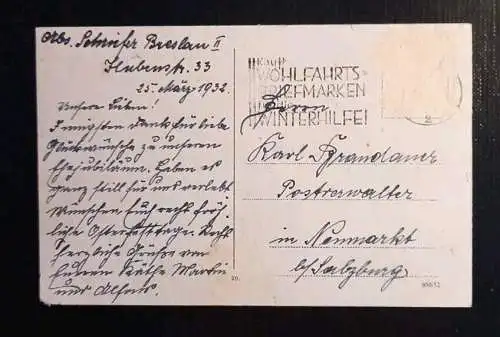 Abs. Schriefer Breslau II
Hubenstr. 33
25. März 1932.
Unsere Lieben!
Innigsten Dank für liebe
Glückwünsche zu unseren
Ehejubiläum. Haben es
ganz still für uns verlebt
Wünschen Euch recht fröh-
liche Osterfesttage. Recht
herzliche Grüsse von
Euren Käthe Martin
und Alfons.
Kauft
WOHLFAHRTS-
BRIEFMARKEN
WINTERHILFE!
Herrn
Karl Brandauer
Postverwalter
in Neumarkt
b/Salzburg